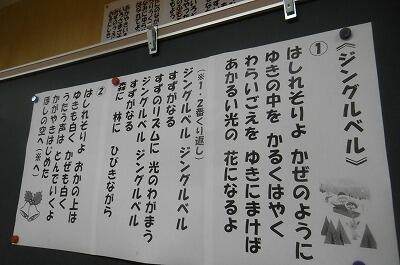 《ジングルベル》
①
はしれそりよ かぜのように
ゆきの中を かるくはやく
わらいごえを ゆきにまけば
あかるい光の 花になるよ
(※1・2番くり返し)
ジングルベル ジングルベル
すずがなる
すずのリズムに 光のわがまう
ジングルベル ジングルベル
すずがなる
森に 林に ひびきながら
2
はしれそりよ おかの上は
ゆきも白く かぜも白く
うたう声は とんでいくよ
かがやきはじめた
ほしの空へ(※へ)